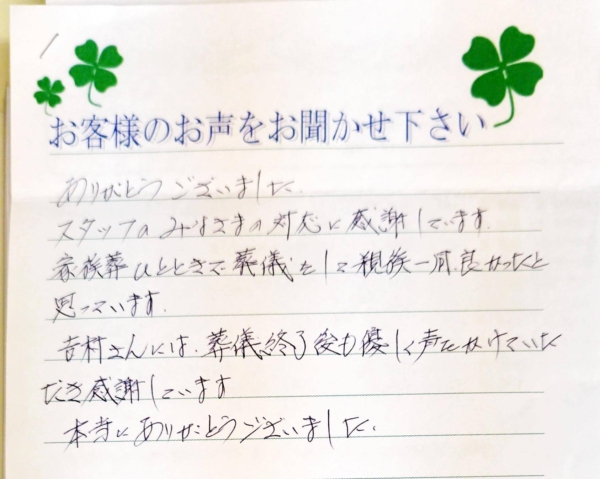 お客様のお声をお聞かせ下さい
ありがとうございました。
スタッフのみなさまの対応に感謝しています。
家族葬ひとときで葬儀をして親族一同良かったと
思っています。
吉村さんには、葬儀終了後も優しく声をかけていた
だき感謝しています
本当にありがとうございました。